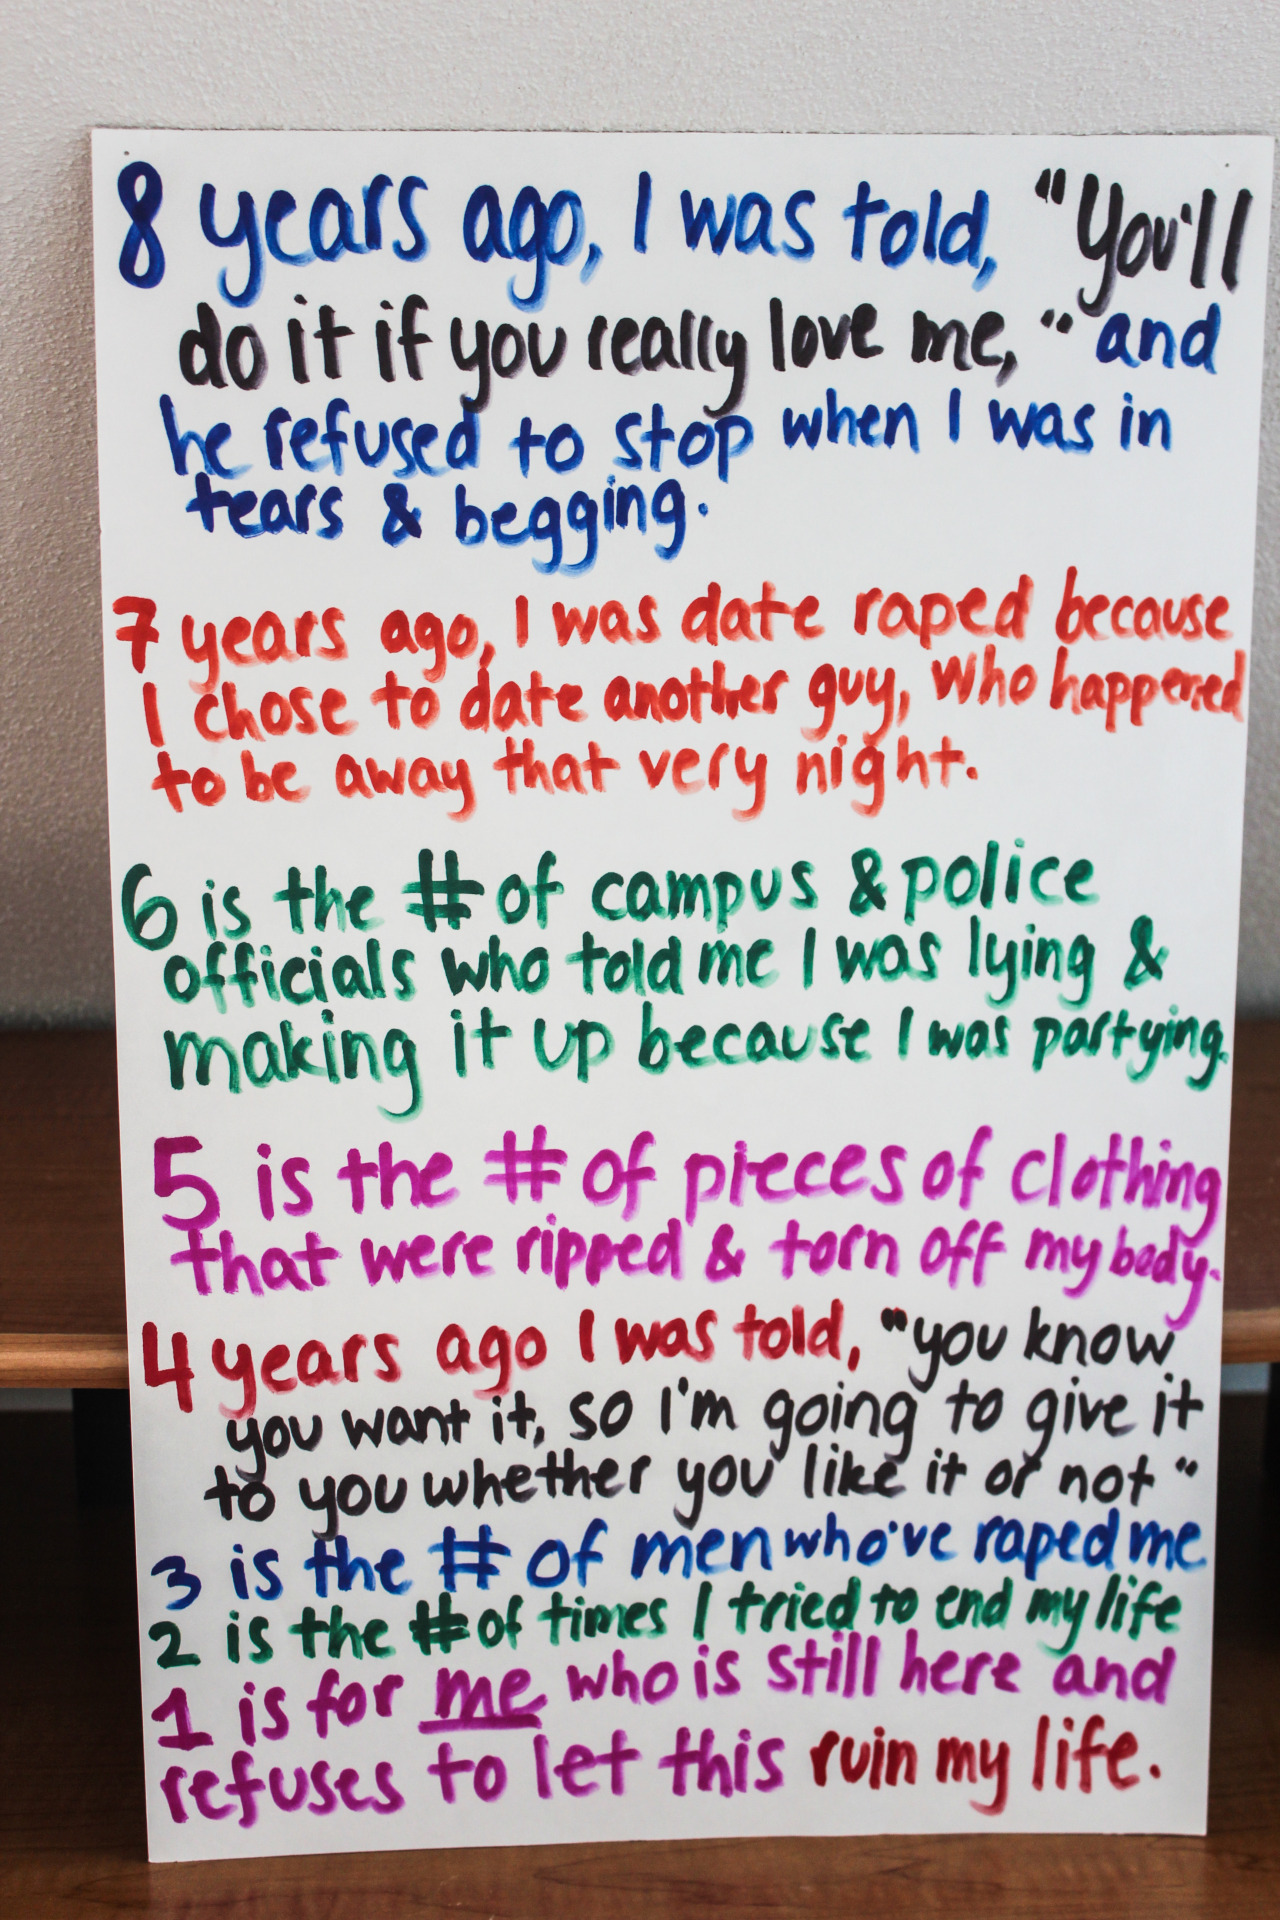 8 years ago, I was told, "You'll
do it if you really love me, " and
he refused to stop when I was in
tears & begging.
7 years ago, I was date raped because
I chose to date another guy, who happened
to be away that very night.
6 is the # of campus & police
officials who told me I was lying &
making it up because I was partying.
5 is the # of pieces of clothing
that were ripped & torn off my body.
4 years ago I was told, "you know
you want it, so I'm going to give it
to you whether you like it or not"
3 is the # of men who've raped me
2 is the # of times I tried to end my life
1 is for me who is still here and
refuses to let this ruin my life.